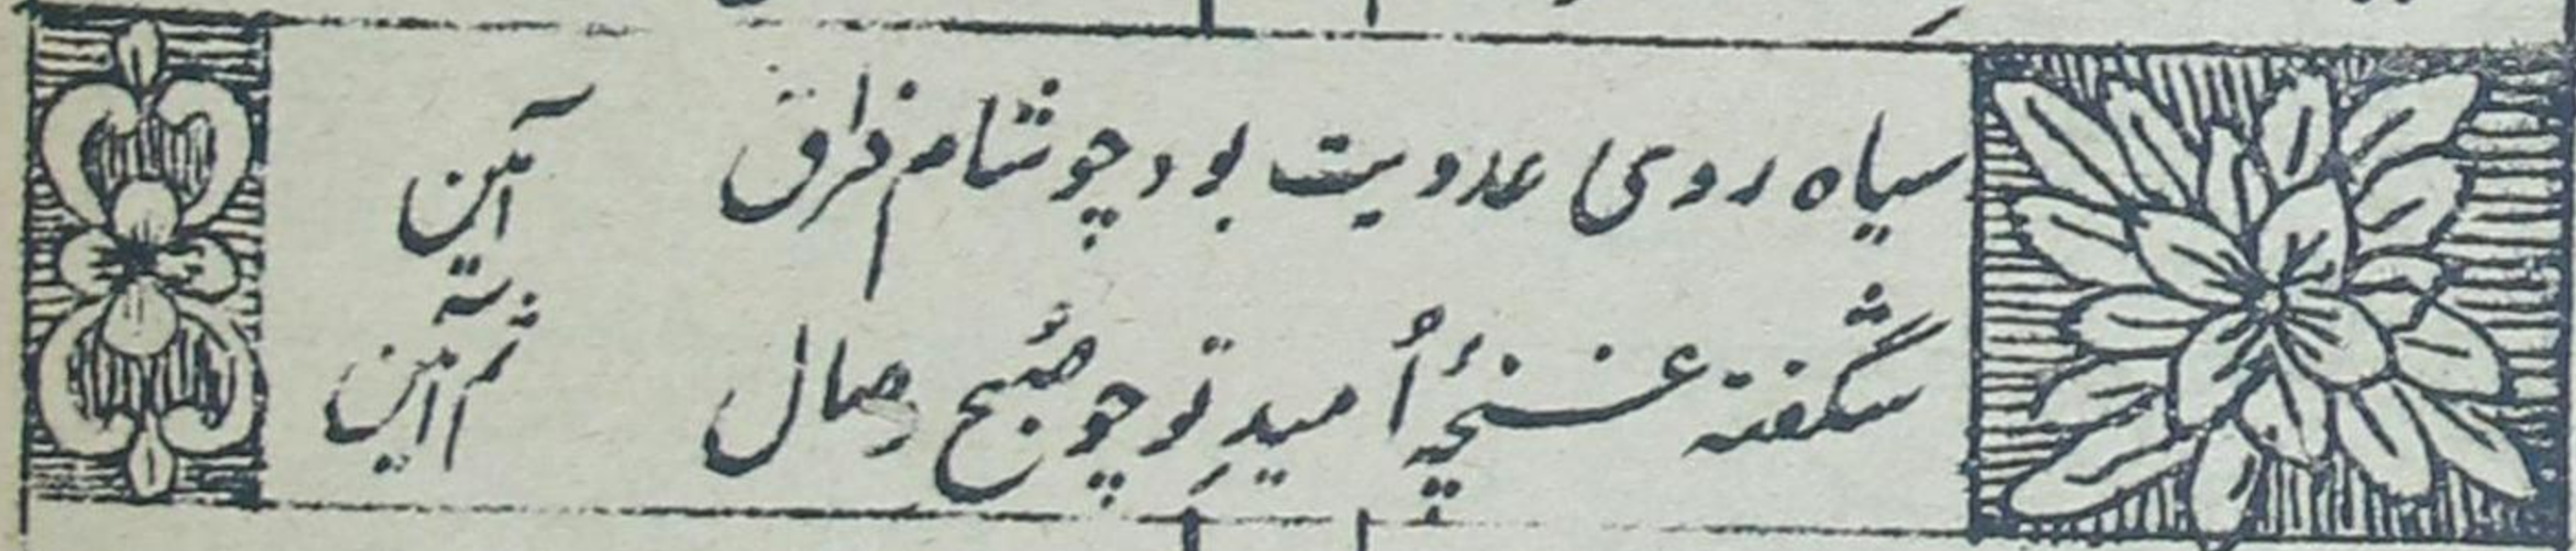 سیاه روی عدویت بود چو شام فراق آمین
شگفته غنچۂ اُمیدِ تو چو صُبحِ وصال ثم آمین